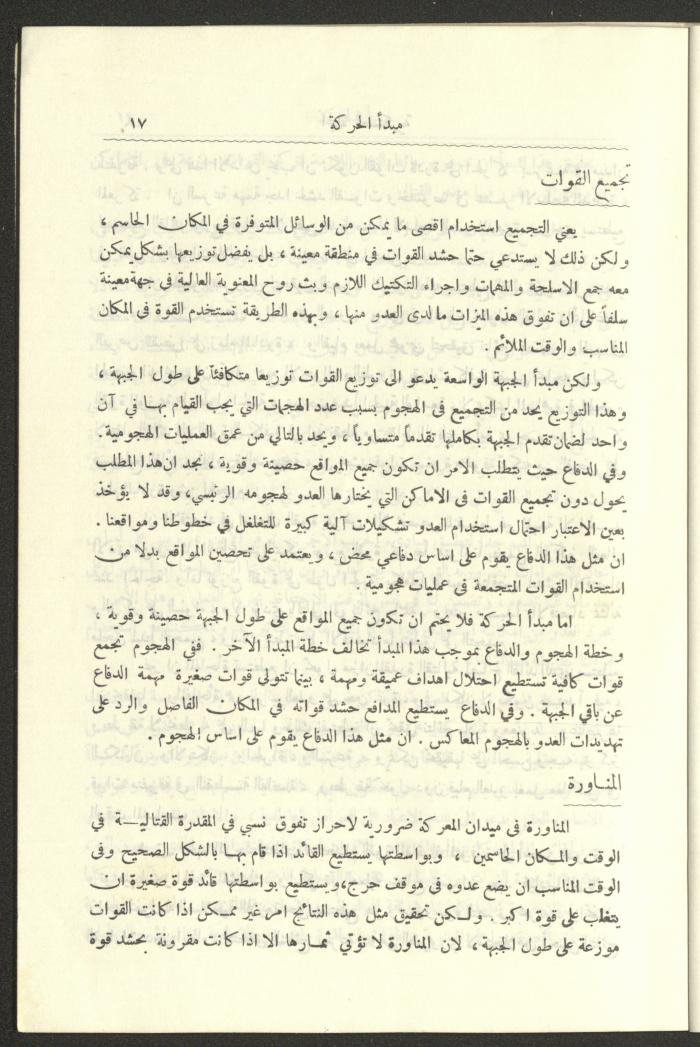 مبدأ الحركة ١٧
تجميع القوات
يعني التجميع استخدام اقصى ما يمكن من الوسائل المتوفرة في المكان الحاسم ،
ولكن ذلك لا يستدعي حتما حشد القوات في منطقة معينة ، بل يفضل توزيعها بشكل يمكن
معه جمع الاسلحة والمهمات واجراء التكتيك اللازم وبث روح المعنوية العالية في جهة معينة
سلفاً على ان تفوق هذه الميزات ما لدى العدو منها ، وبهذه الطريقة تستخدم القوة في المكان
المناسب والوقت الملائم .
ولكن مبدأ الجبهة الواسعة يدعو الى توزيع القوات توزيعا متكافئاً على طول الجبهة ،
وهذا التوزيع يحد من التجميع في الهجوم بسبب عدد الهجمات التي يجب القيام بهـا في آن
واحد لضمان تقدم الجبهة بكاملها تقدماً متساوياً ، ويحد بالتالي من عمق العمليات الهجومية .
وفي الدفاع حيث يتطلب الامر ان تكون جميع المواقع حصينة وقوية ، نجد ان هذا المطلب
يحول دون تجميع القوات في الاماكن التي يختارها العدو لهجومه الرئيسي، وقد لا يؤخذ
بعين الاعتبار احتمال استخدام العدو تشكيلات آلية كبيرة للتغلغل في خطوطنا ومواقعنا .
ان مثل هذا الدفاع يقوم على اساس دفاعي محض ، ويعتمد على تحصين المواقع بدلا من
استخدام القوات المتجمعة في عمليات هجومية .
اما مبدأ الحركة فلا يحتم ان تكون جميع المواقع على طول الجبهة حصينة وقوية ،
وخطة الهجوم والدفاع بموجب هذا المبدأ تخالف خطة المبدأ الآخر . ففي الهجوم تجمع
قوات كافية تستطيع احتلال اهداف عميقة ومهمة ، بينما تتولى قوات صغيرة مهمة الدفاع
عن باقي الجبهة . وفي الدفاع يستطيع المدافع حشد قواته في المكان الفاصل والرد على
تهديدات العدو بالهجوم المعاكس . ان مثل هذا الدفاع يقوم على اساس الهجوم .
المنـاورة
المناورة في ميدان المعركة ضرورية لاحراز تفوق نسبي في المقدرة القتاليـة في
الوقت والمـكان الحاسمين ، وبواسطتها يستطيع القائد اذا قام بهـا بالشكل الصحيح وفي
الوقت المناسب ان يضع عدوه في موقف حرج،ويستطيع بواسطتها قائد قوة صغيرة ان
يتغلب على قوة اكبر . ولـكن تحقيق مثل هذه النتائج امر غير ممـكن اذا كانت القوات
موزعة على طول الجبهة ، لان المناورة لا تؤتي ثمـارها الا اذا كانت مقرونة بحشد قوة